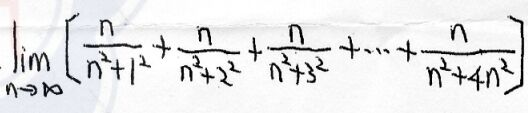 lim n→∞ [ n/(n²+1²) + n/(n²+2²) + n/(n²+3²) + ... + n/(n²+4n²) ]